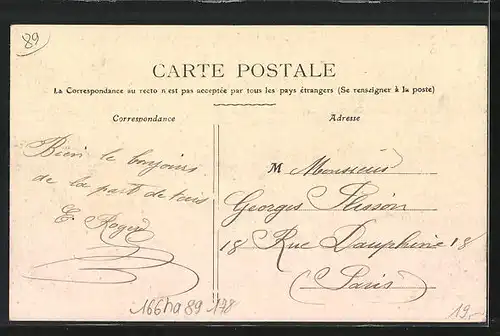 89
CARTE POSTALE
La Correspondance au recto n'est pas acceptée par tous les pays étrangers (Se renseigner à la poste)
Correspondance
Bien le bonjour
de la part de tous
E. Roger
Adresse
M Monsieur
Georges Plisson
18 Rue Dauphine 18
(Paris)
166ha 89 178
19.-